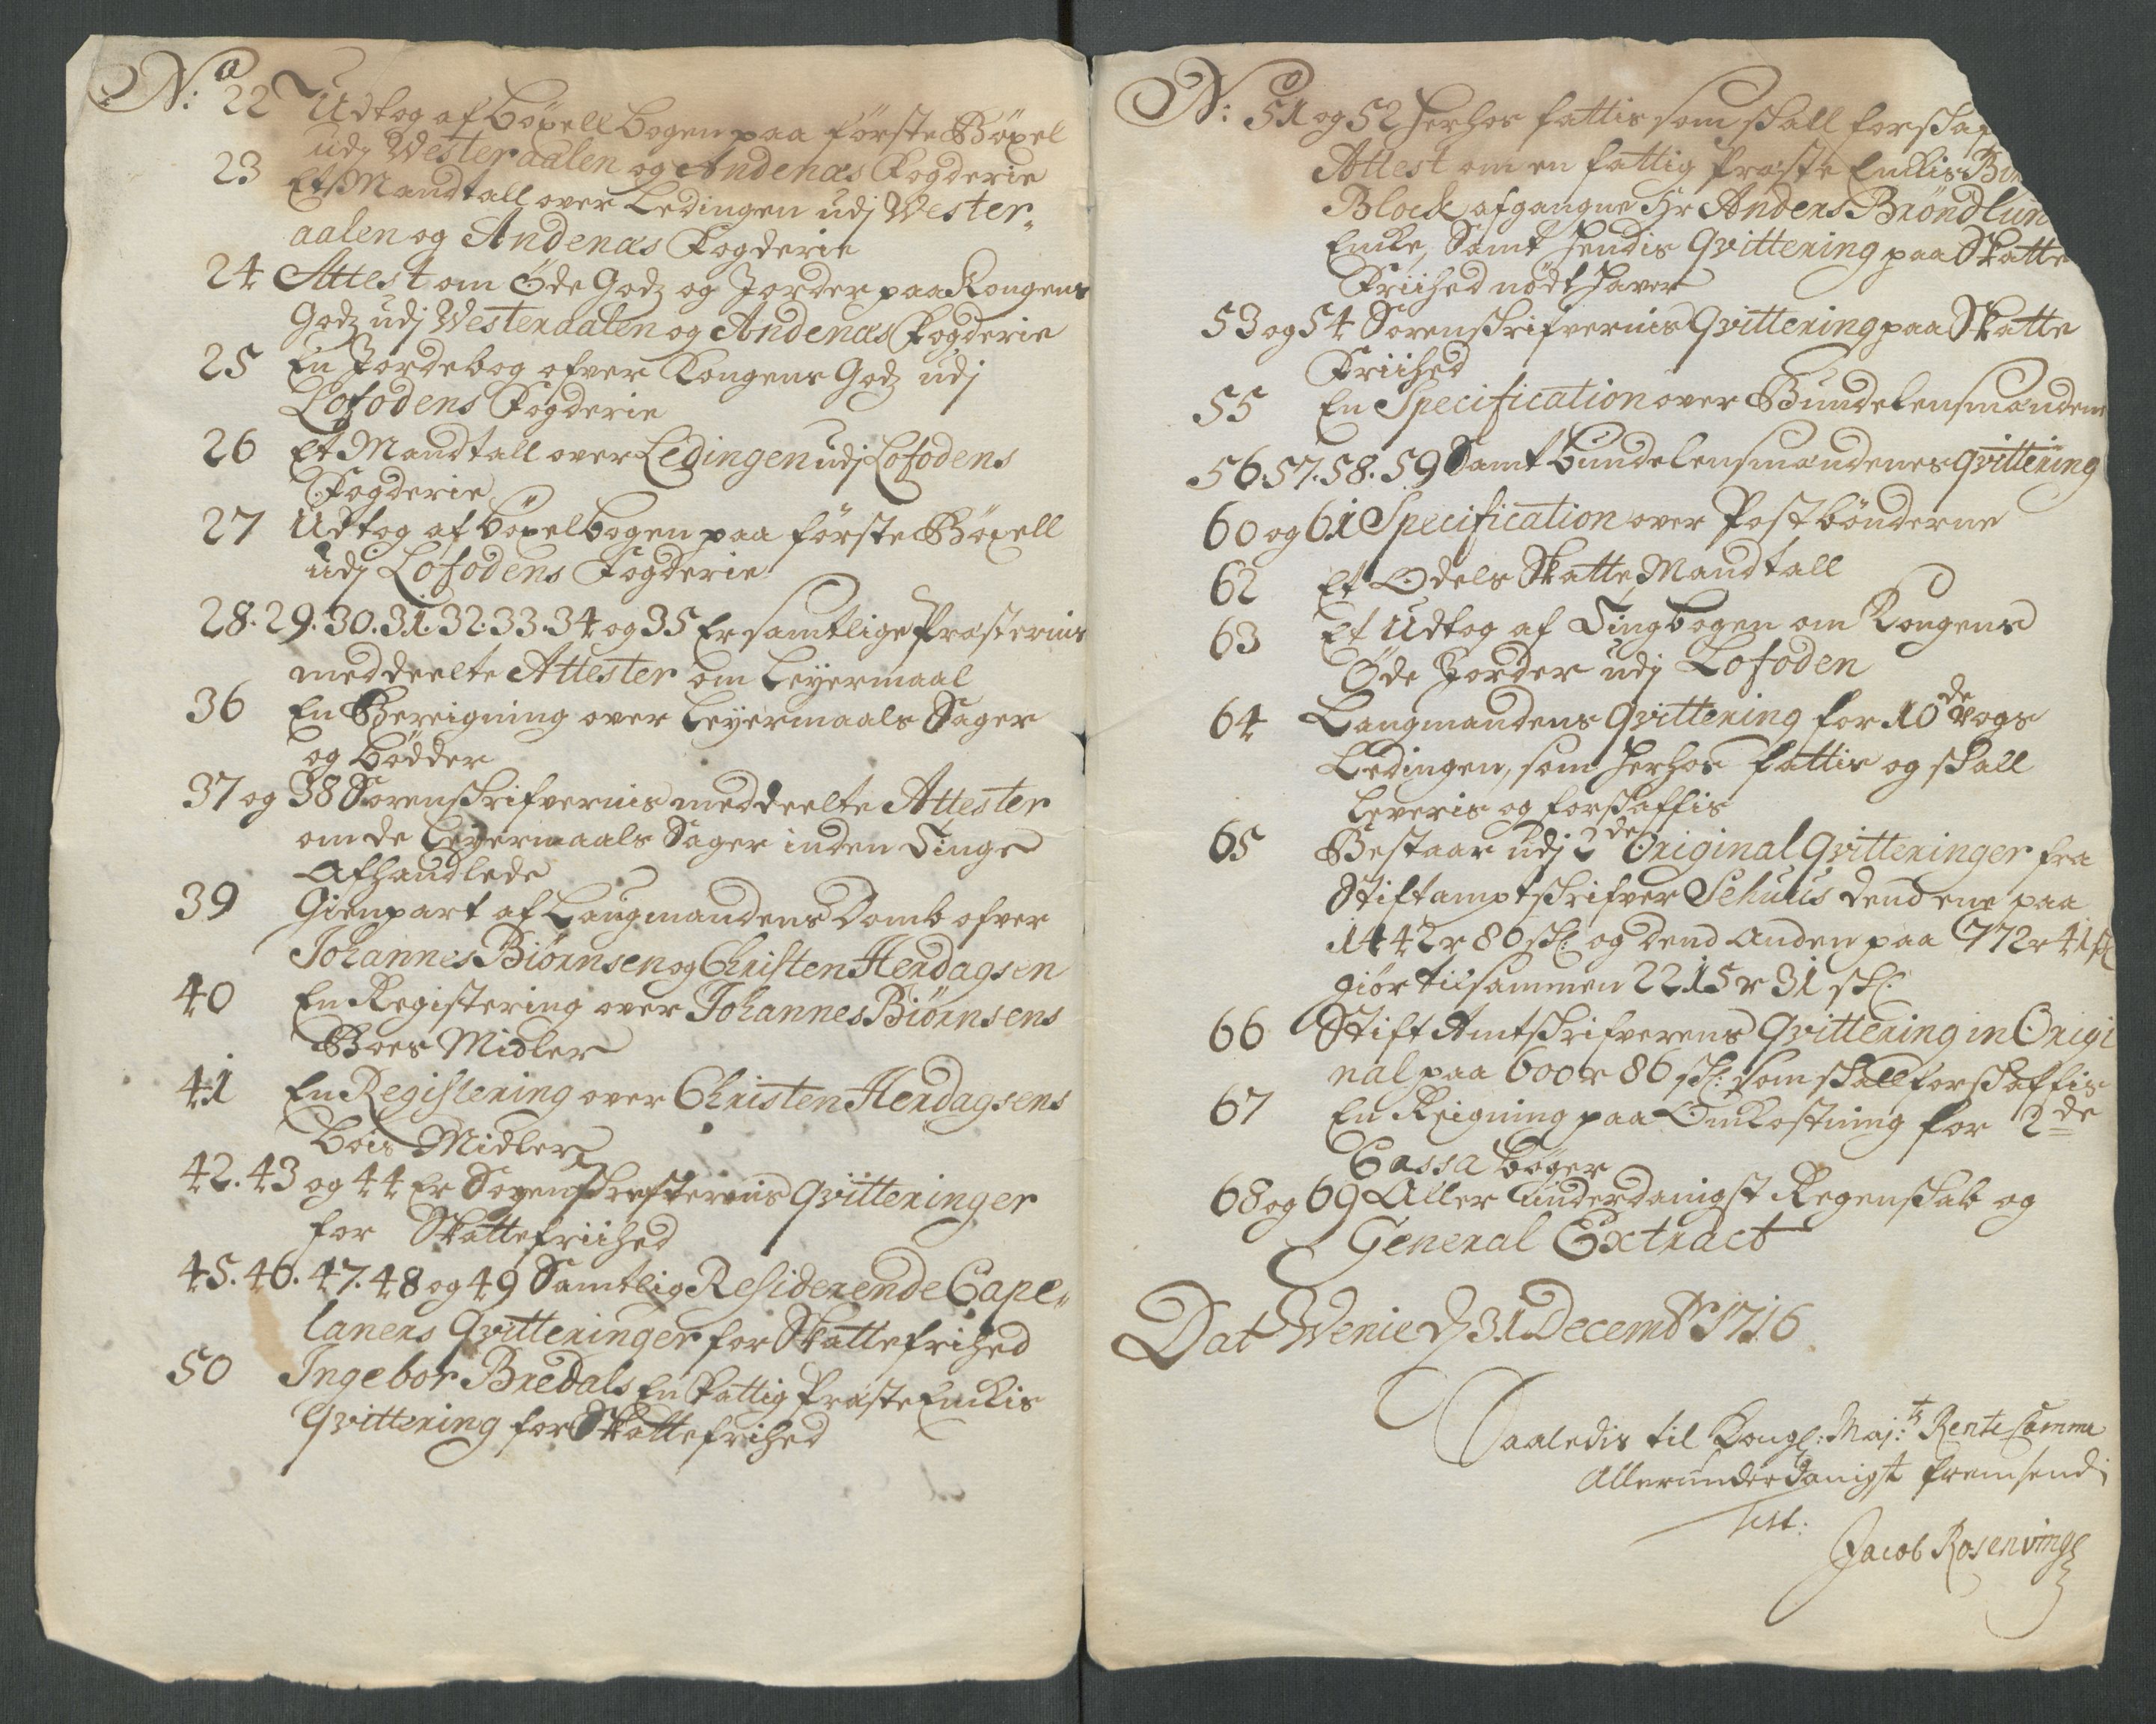 No: 22 Udtog af böxell bogen paa förste Böxel
udj Westeraalen og Andenæs Fogderie
23 Et Mandtall over Ledingen udj Wester„
aalen og Andenæs Fogderie
24 Attest om Öde Godz og Jorder paa Kongens
Godz udj Westeraalen og Andenæs Fogderie
25 En Jordebog ofver Kongens Godz udj
Lofodens Fogderie
26 Et Mandtall over Ledingen udj Lofodens
Fogderie
27 Udtog af böxelbogen paa förste Böxell
udj Lofodens Fogderie
28. 29. 30. 31. 32. 33. 34 og 35 Er samtlige Præsternis
meddeelte Attester om Leyermaal
36 En Bereigning over Leyermaals Sager
og bödder
37 og 38 Sorenskrifvernis meddeelte Attester
om de Leyermaals Sager inden Tinge
Afhandlede
39 Gienpart af Laugmandens Domb ofver
Johannes Biörnsen og Christen Herdagsen
40 En Registering over Johannes Biörnsens
Boes Midler
41 En Registering over Christen Herdagsens
bois Midler
42. 43 og 44 Er Qvitteringer
for Skattefriihed
45. 46. 47. 48 og 49 Samtlig Residerende Capel„
laners Qvitteringer for Skattefrihed
50 Ingebor Bredals En Fattig Præste Enckis
Qvittering for Skattefrihed
No: 51 og 52 Herhos fattis som skall forskaf
Attest om en fattig Præste Enckis
Block afgangne Hr Anders Bröndlun
Encke, Samt hendis Qvittering paa Skatte
Friihed nödt haver
53 og 54 Sorenskrifvernis Qvittering paa Skatte
Friihed
55 En Specification over Bundelensmændene
56. 57. 58. 59 Samt bundelensmændenes qvittering
60 og 61 Specification over Postbönderne
62 Et Odels Skatte Mandtall
63 Et Udtog af Tingbogen om Kongens
Öde Jorder udj Lofoden
64 Laugmandens Qvittering for 10de vogs
Ledingen, som herhos fattis og skall
leveris og forskaffis
65 Bestaar udj 2de Original Qvitteringer fra
Stiftamptskrifver Schuus dend ene paa
1442r 86 sk: og dend anden paa 772r 41 sk
giör tilsammen 2215r 31 sk:
66 Stift Amtskrifverens Qvittering in Origi
nal paa 600r 86 sk: som skall forskaffis
67 En Reigning paa Omkostning for 2de
Cassa böger
68 og 69 Aller Underdanigst Regenskab og
General Extract
Dat Wenie d 31 Decembr 1716
Saaledis til Kongl: Maj:tz Rente Camme
Allerunderdanigst fremsend
Test:
Jacob Rosenvinge